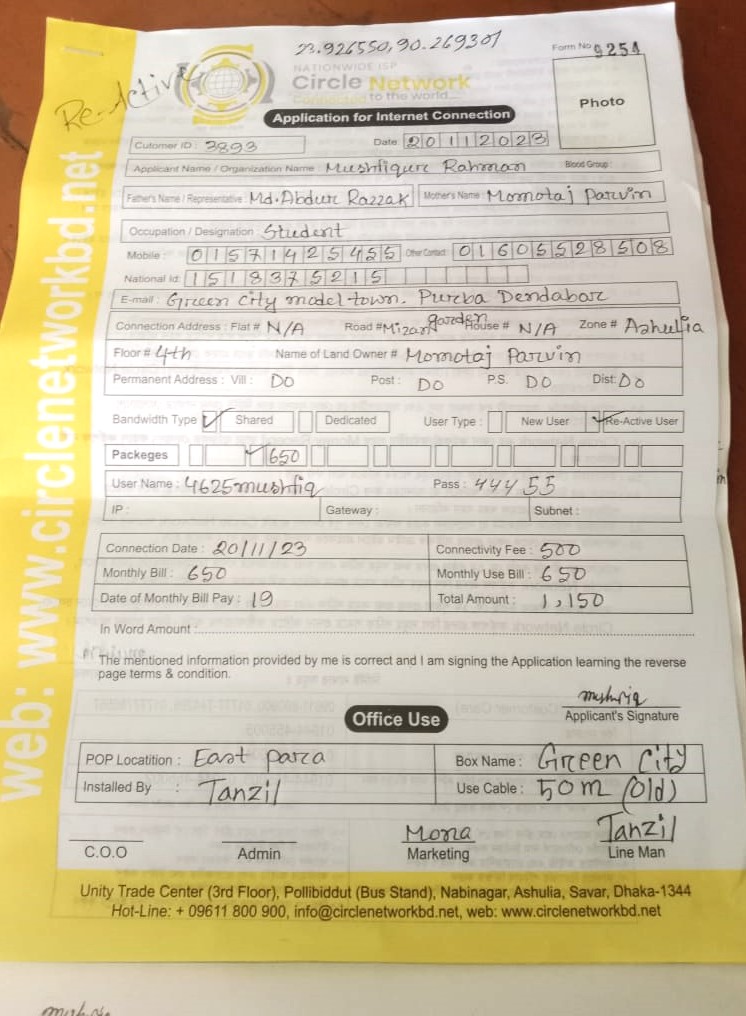 23.926550,90.269301
Form No 9254
Re-Active
NATIONWIDE ISP
Circle Network
Connected to the world....
Photo
Application for Internet Connection
Cutomer ID : 3893 Date 20112023
Applicant Name / Organization Name : Mushfiqure Rahman Blood Group :
Father's Name / Representative : Md. Abdur Razzak Mother's Name : Momotaj Parvin
Occupation / Designation : Student
Mobile : 01571425455 Other Contact 01605528508
National Id: 1518375215
E-mail : Green city model town. Purba Dendabar
Connection Address : Flat # N/A Road # Mizan garden House # N/A Zone # Ashulia
Floor # 4th Name of Land Owner # Momotaj Parvin
Permanent Address : Vill : DO Post : DO P.S. DO Dist: DO
Bandwidth Type ✓ Shared Dedicated User Type : New User ✓ Re-Active User
Packeges ✓ 650
User Name : 4625mushfiq Pass : 44455
IP : Gateway : Subnet :
Connection Date : 20/11/23 Connectivity Fee : 500
Monthly Bill : 650 Monthly Use Bill : 650
Date of Monthly Bill Pay : 19 Total Amount : 1,150
In Word Amount :
The mentioned information provided by me is correct and I am signing the Application learning the reverse
page terms & condition.
Applicant's Signature
Office Use
POP Locatition : East para Box Name : Green City
Installed By : Tanzil Use Cable : 50m (Old)
Mona Tanzil
C.O.O Admin Marketing Line Man
Unity Trade Center (3rd Floor), Pollibiddut (Bus Stand), Nabinagar, Ashulia, Savar, Dhaka-1344
Hot-Line: + 09611 800 900, info@circlenetworkbd.net, web: www.circlenetworkbd.net
web: www.circlenetworkbd.net